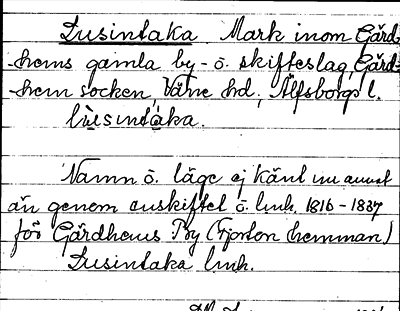 Lusintaka Mark inom Gärd-
hems gamla by- o. skifteslag, Gärd-
hem socken, Väne hd., Älfsborgs l.
lùsintàka.
Namn o. läge ej känt nu annat
än genom enskiftet o. lmh. 1816-1837
för Gärdhems By (Fjorton hemman)
Lusintaka lmh.